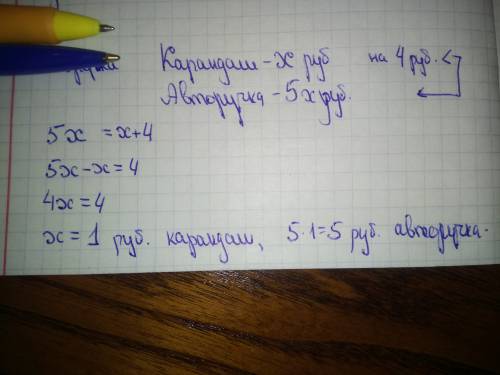 Карандаш - х руб на 4 руб.
Авторучка - 5х руб.
5х = х+4
5х-х=4
4х=4
х=1 руб. карандаш, 5·1=5 руб. авторучка.